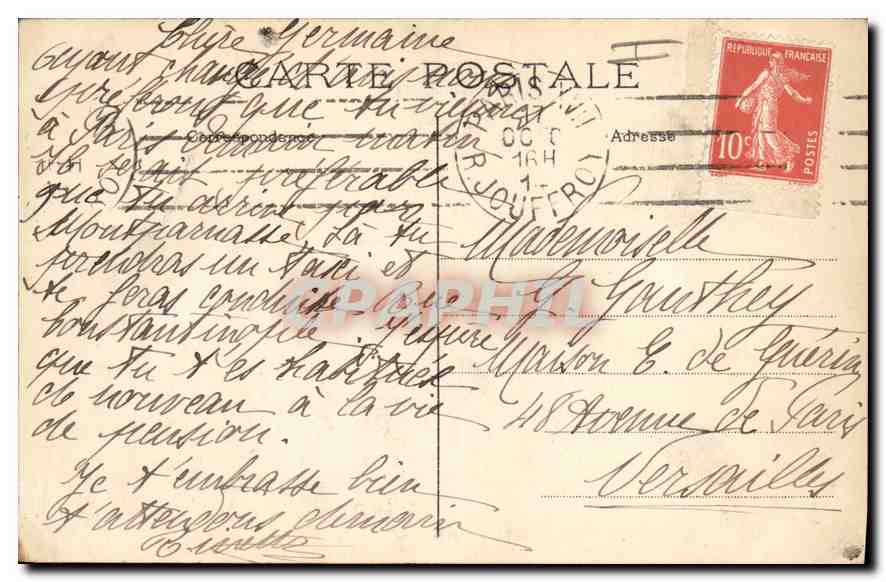 Chère Germaine
Ayant changé
CARTE POSTALE
que tu viennes
à Paris demain matin
Correspondance
Il serait préférable
que tu arrives par
Montparnasse, là tu
prendras un taxi et
te feras conduire Rue
Constantinople. J'espère
que tu t'es habituée
de nouveau à la vie
de pension.
Je t'embrasse bien
t'attendons demain
PARIS
OCT
16H
R. JOUFFROY
Adresse
REPUBLIQUE FRANÇAISE
10c
POSTES
Mademoiselle
G. Gauthey
Maison E. de Guérin
48 Avenue de Paris
Versailles
CPAPHIL